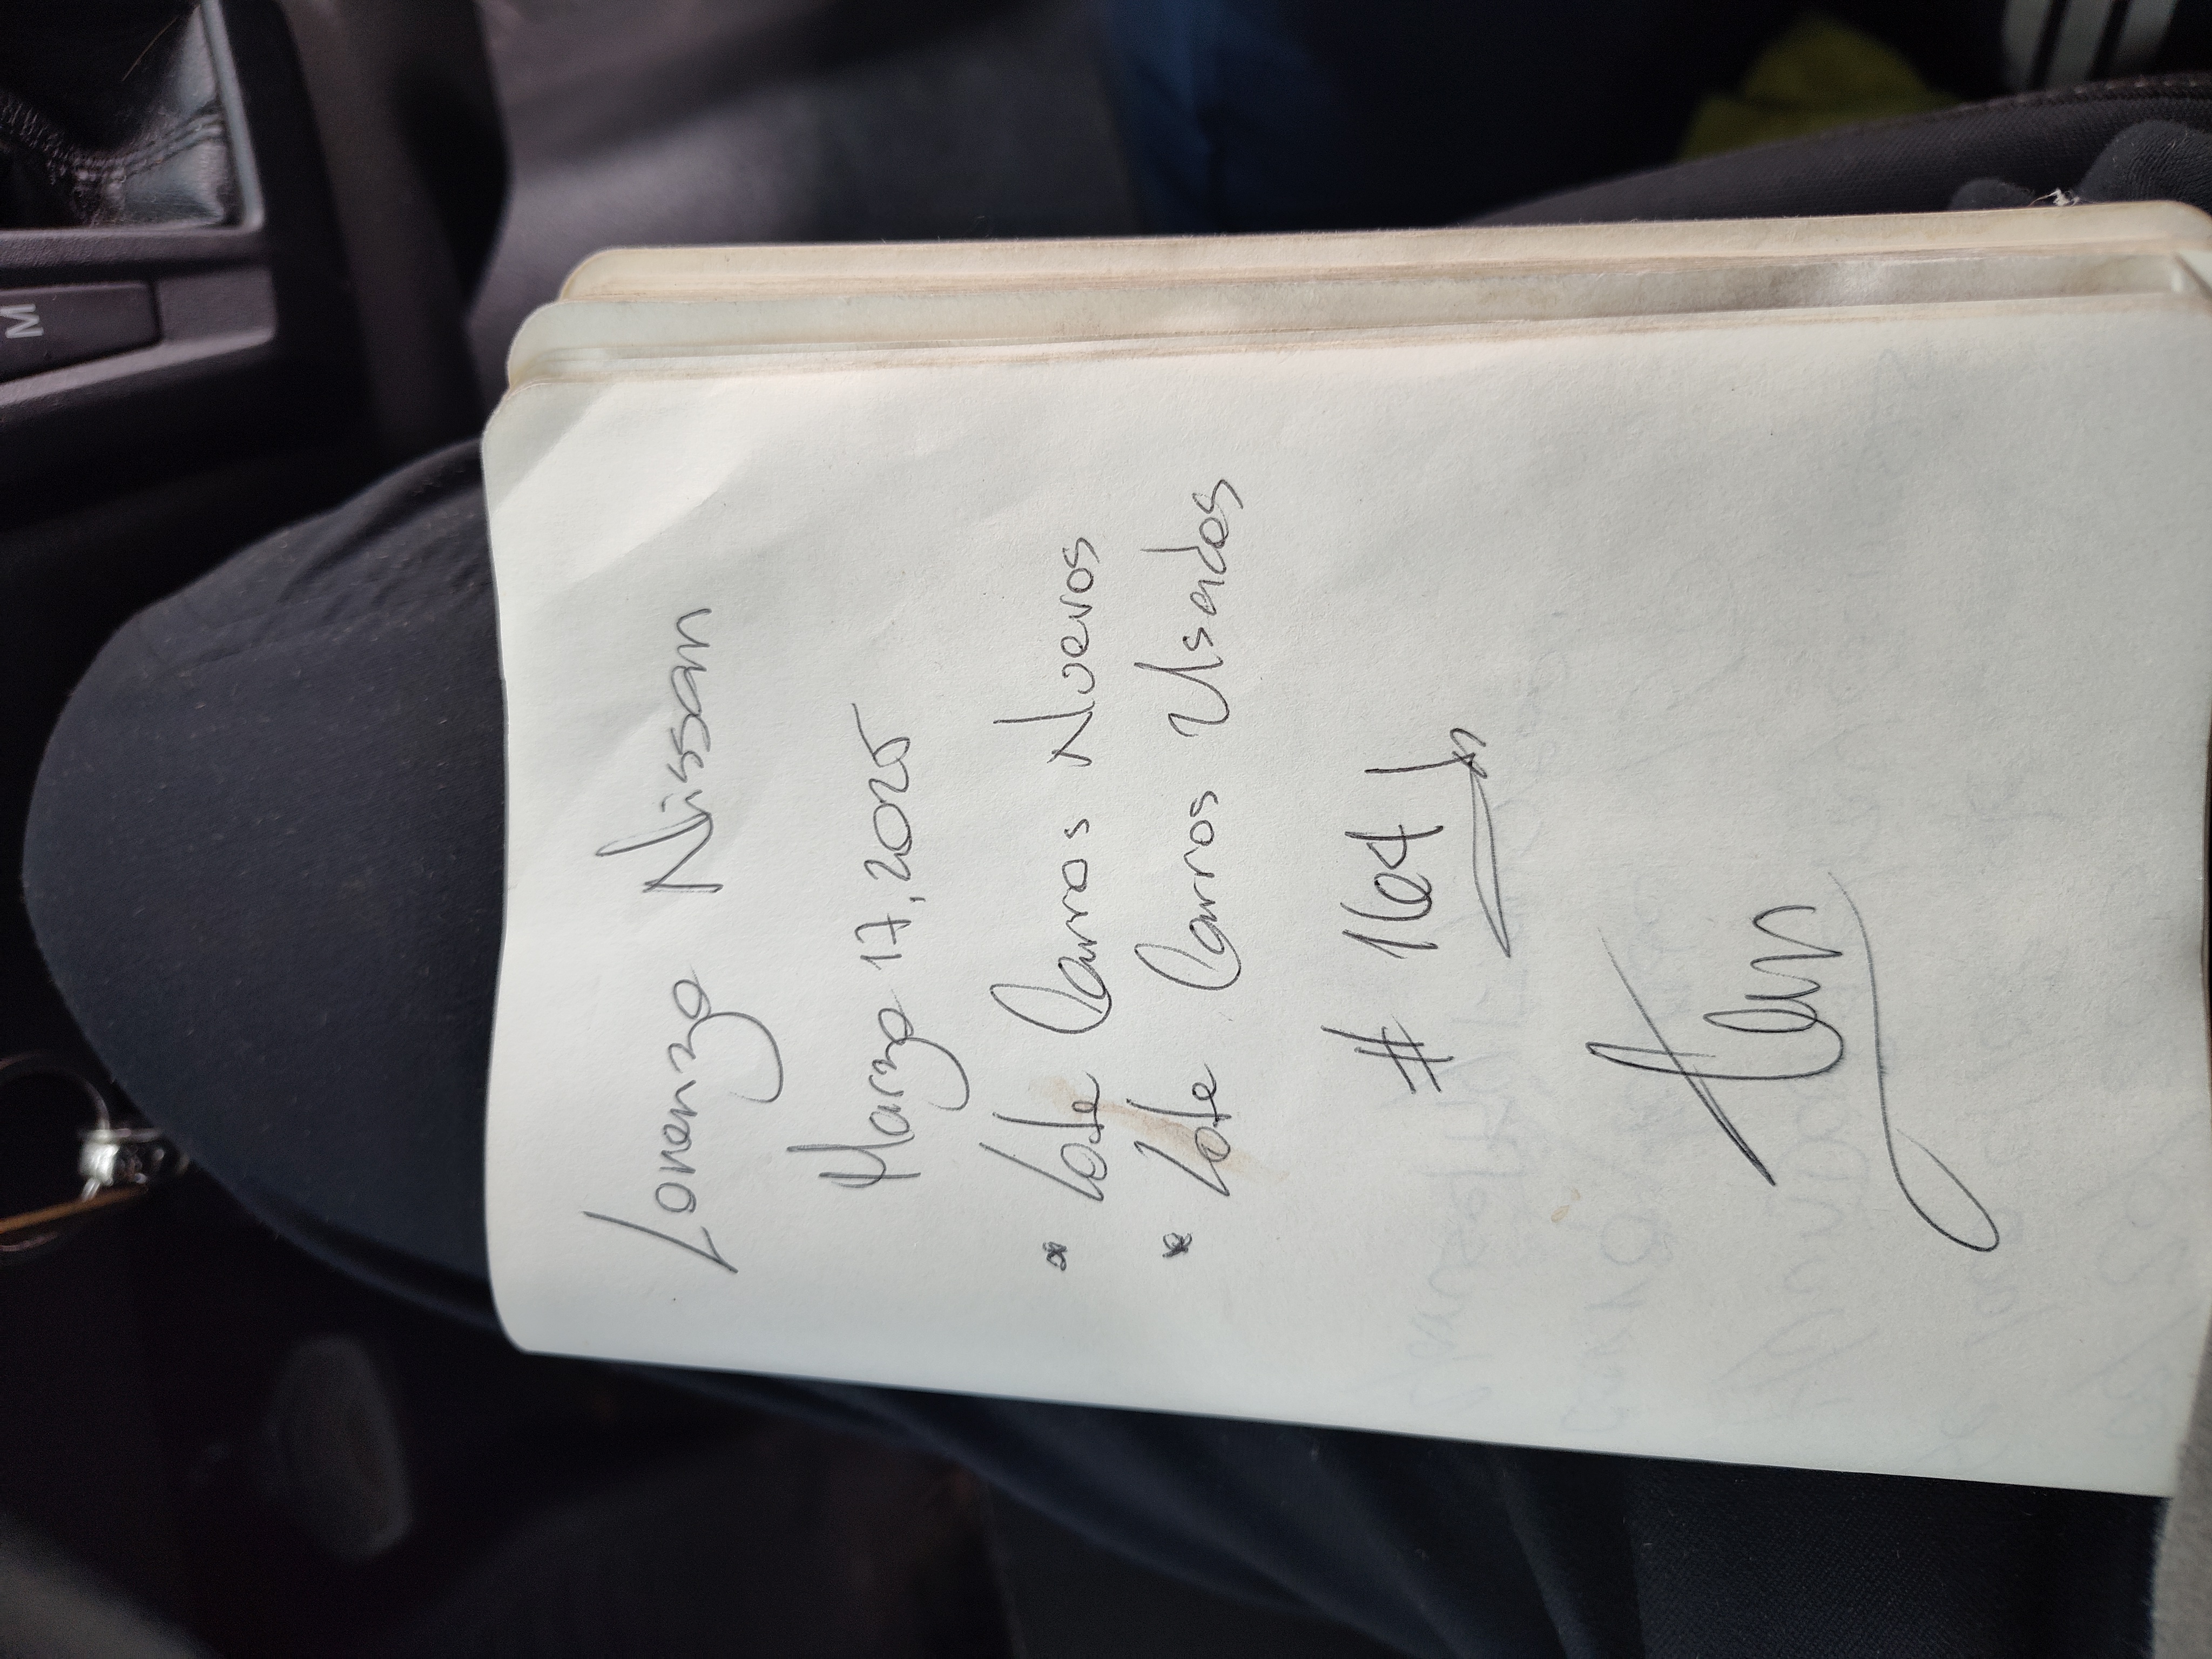 Lorenzo Nissan
Marzo 17, 2025
* Lote Carros Nuevos
* Lote Carros Usados
#
M